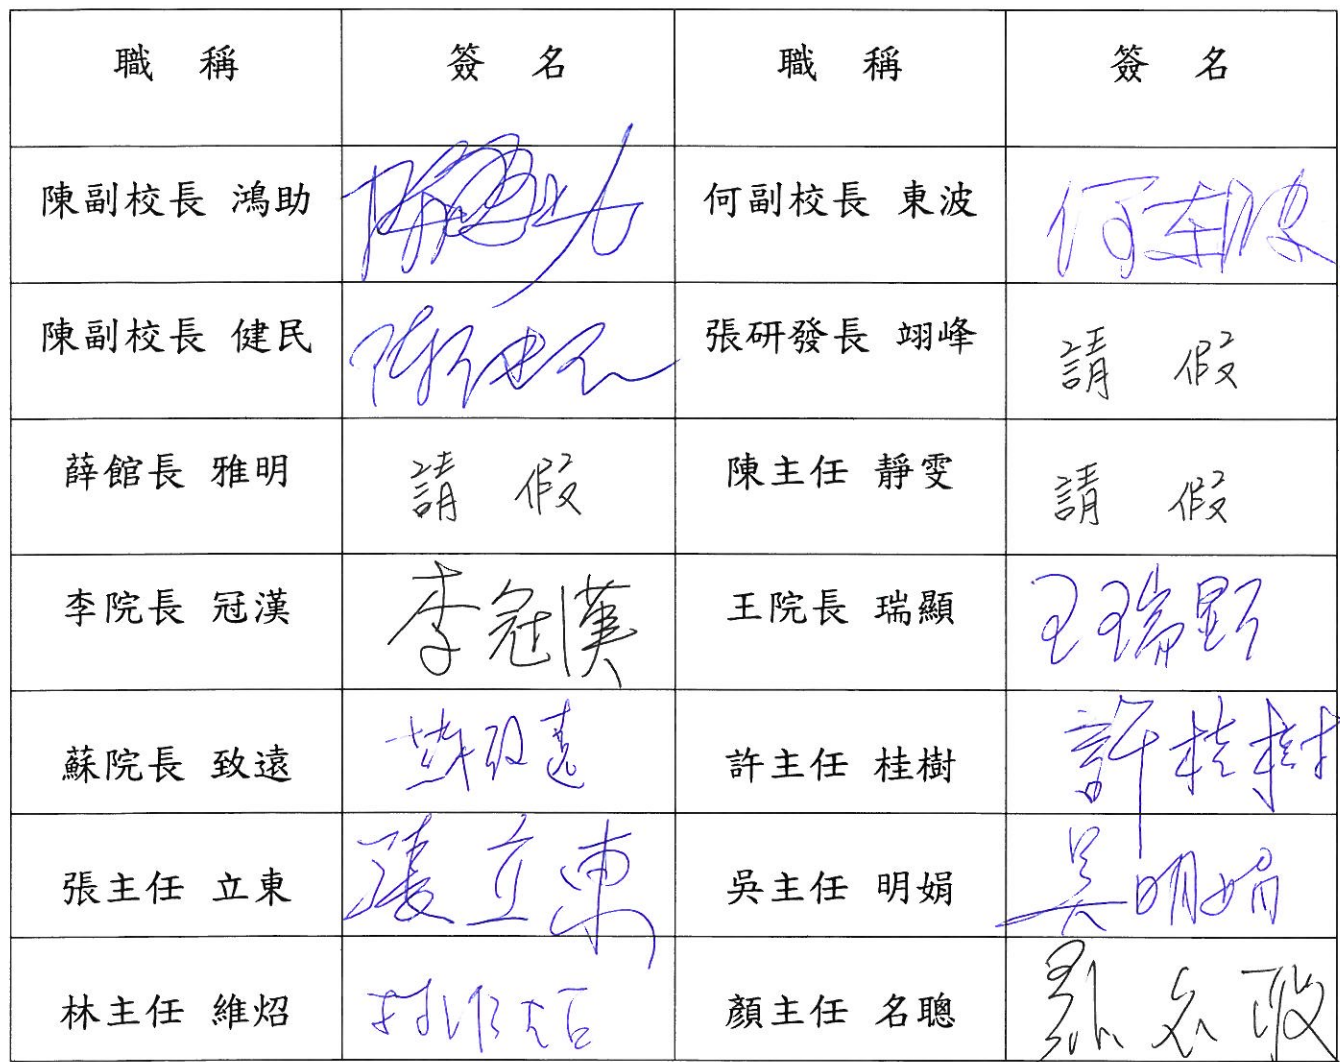 職稱 簽名 職稱 簽名
陳副校長 鴻助 陳鴻助 何副校長 東波 何東波
陳副校長 健民 陳健民 張研發長 翊峰 請假
薛館長 雅明 請假 陳主任 靜雯 請假
李院長 冠漢 李冠漢 王院長 瑞顯 王瑞顯
蘇院長 致遠 蘇致遠 許主任 桂樹 許桂樹
張主任 立東 張立東 吳主任 明娟 吳明娟
林主任 維炤 林維炤 顏主任 名聰